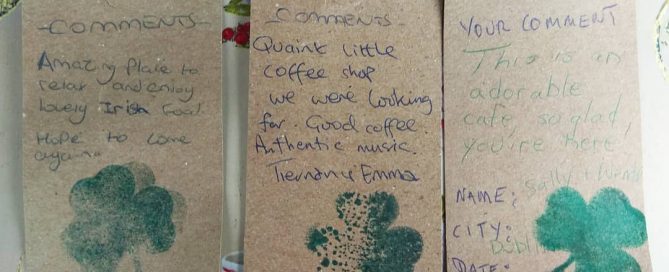 - COMMENTS -
Amazing Place to
relax and enjoy
lovely Irish Goal.
Hope to come
again
- COMMENTS -
Quaint little
coffee shop
we were looking
for. Good coffee.
Authentic music.
Emma
YOUR COMMENT
This is an
adorable
cafe, so glad
you're here,
Sally
NAME:
CITY:
DATE: